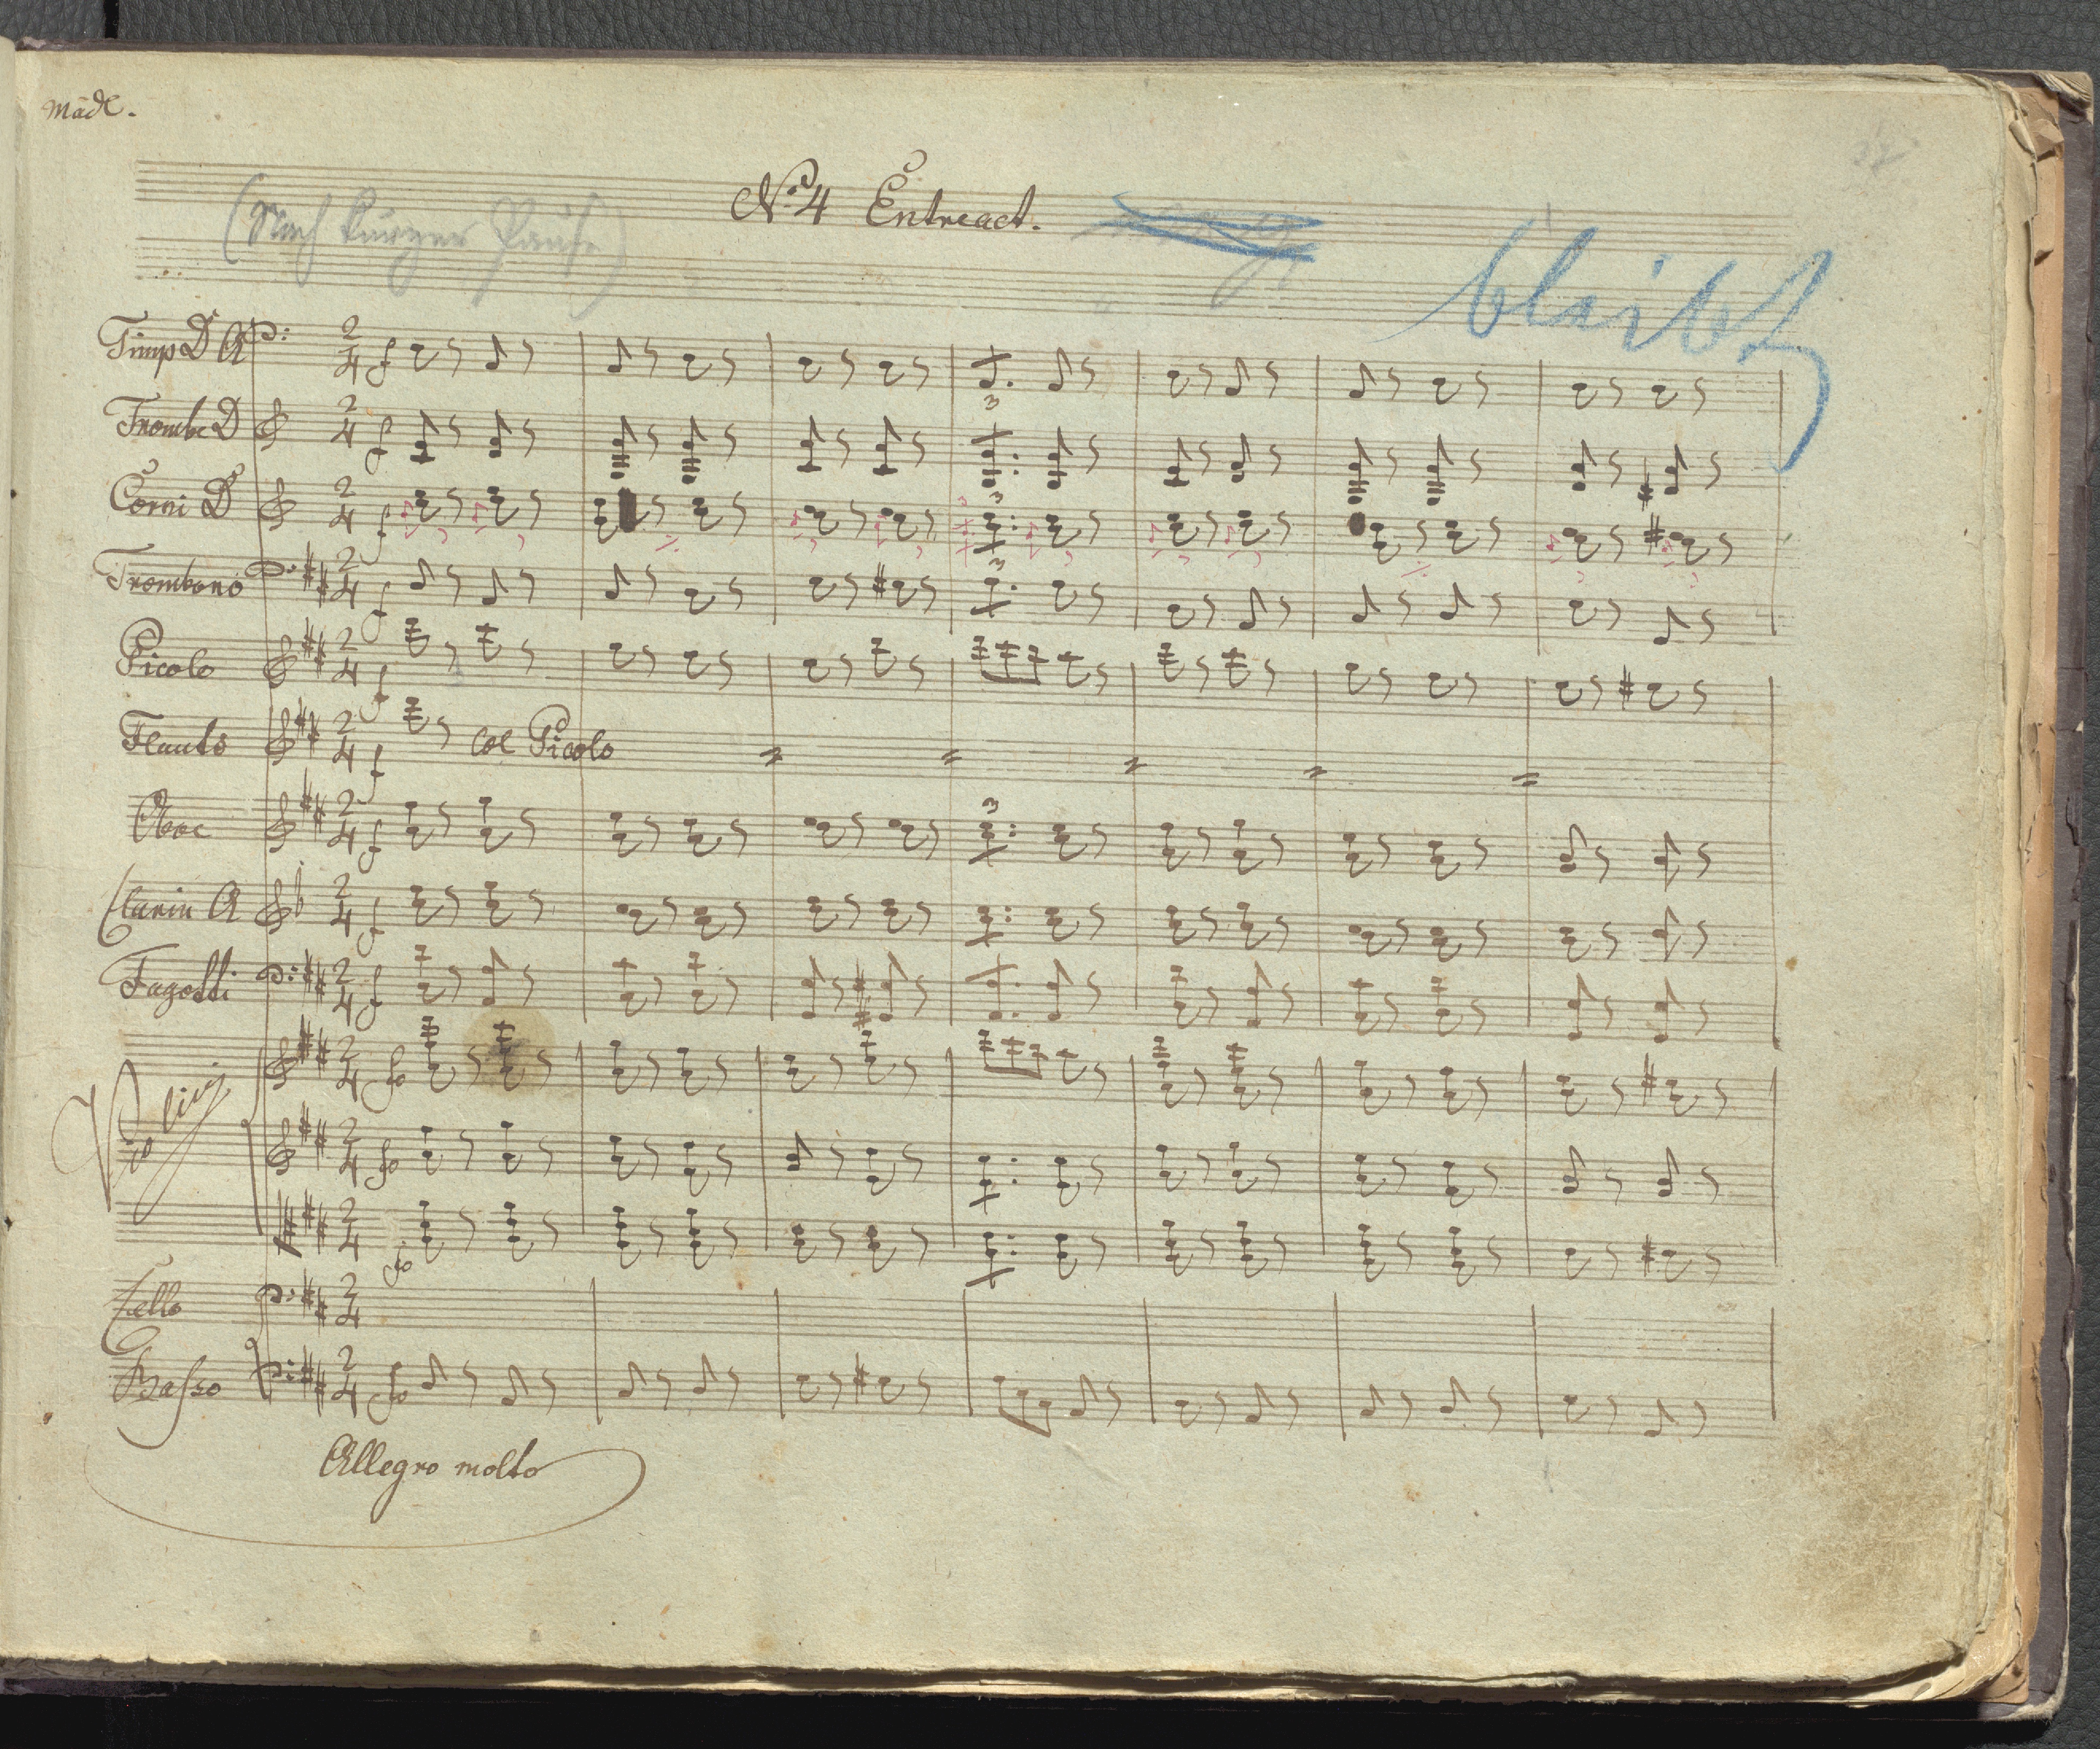 Mäde.
No. 4 Entreact.
(Nach kurzer Pause)
bleibt
Timp D A
Trombe D
Corni D
Trombono
Picolo
Flauto
col Picolo
Oboe
Clarin A
Fagotti
Violini
Cello
Basso
Allegro molto